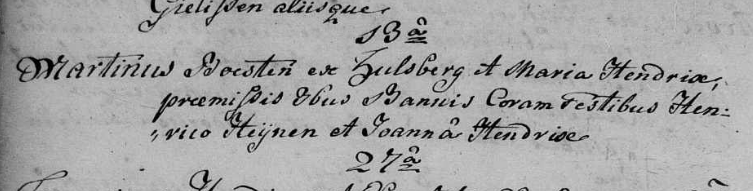 Gielissen aliisque
13â
Martinus Boesten ex Hulsberg et Maria Hendrix,
præmissis 3bus Bannis Coram testibus Hen=
=rico Heÿnen et Joannâ Hendrix
27â